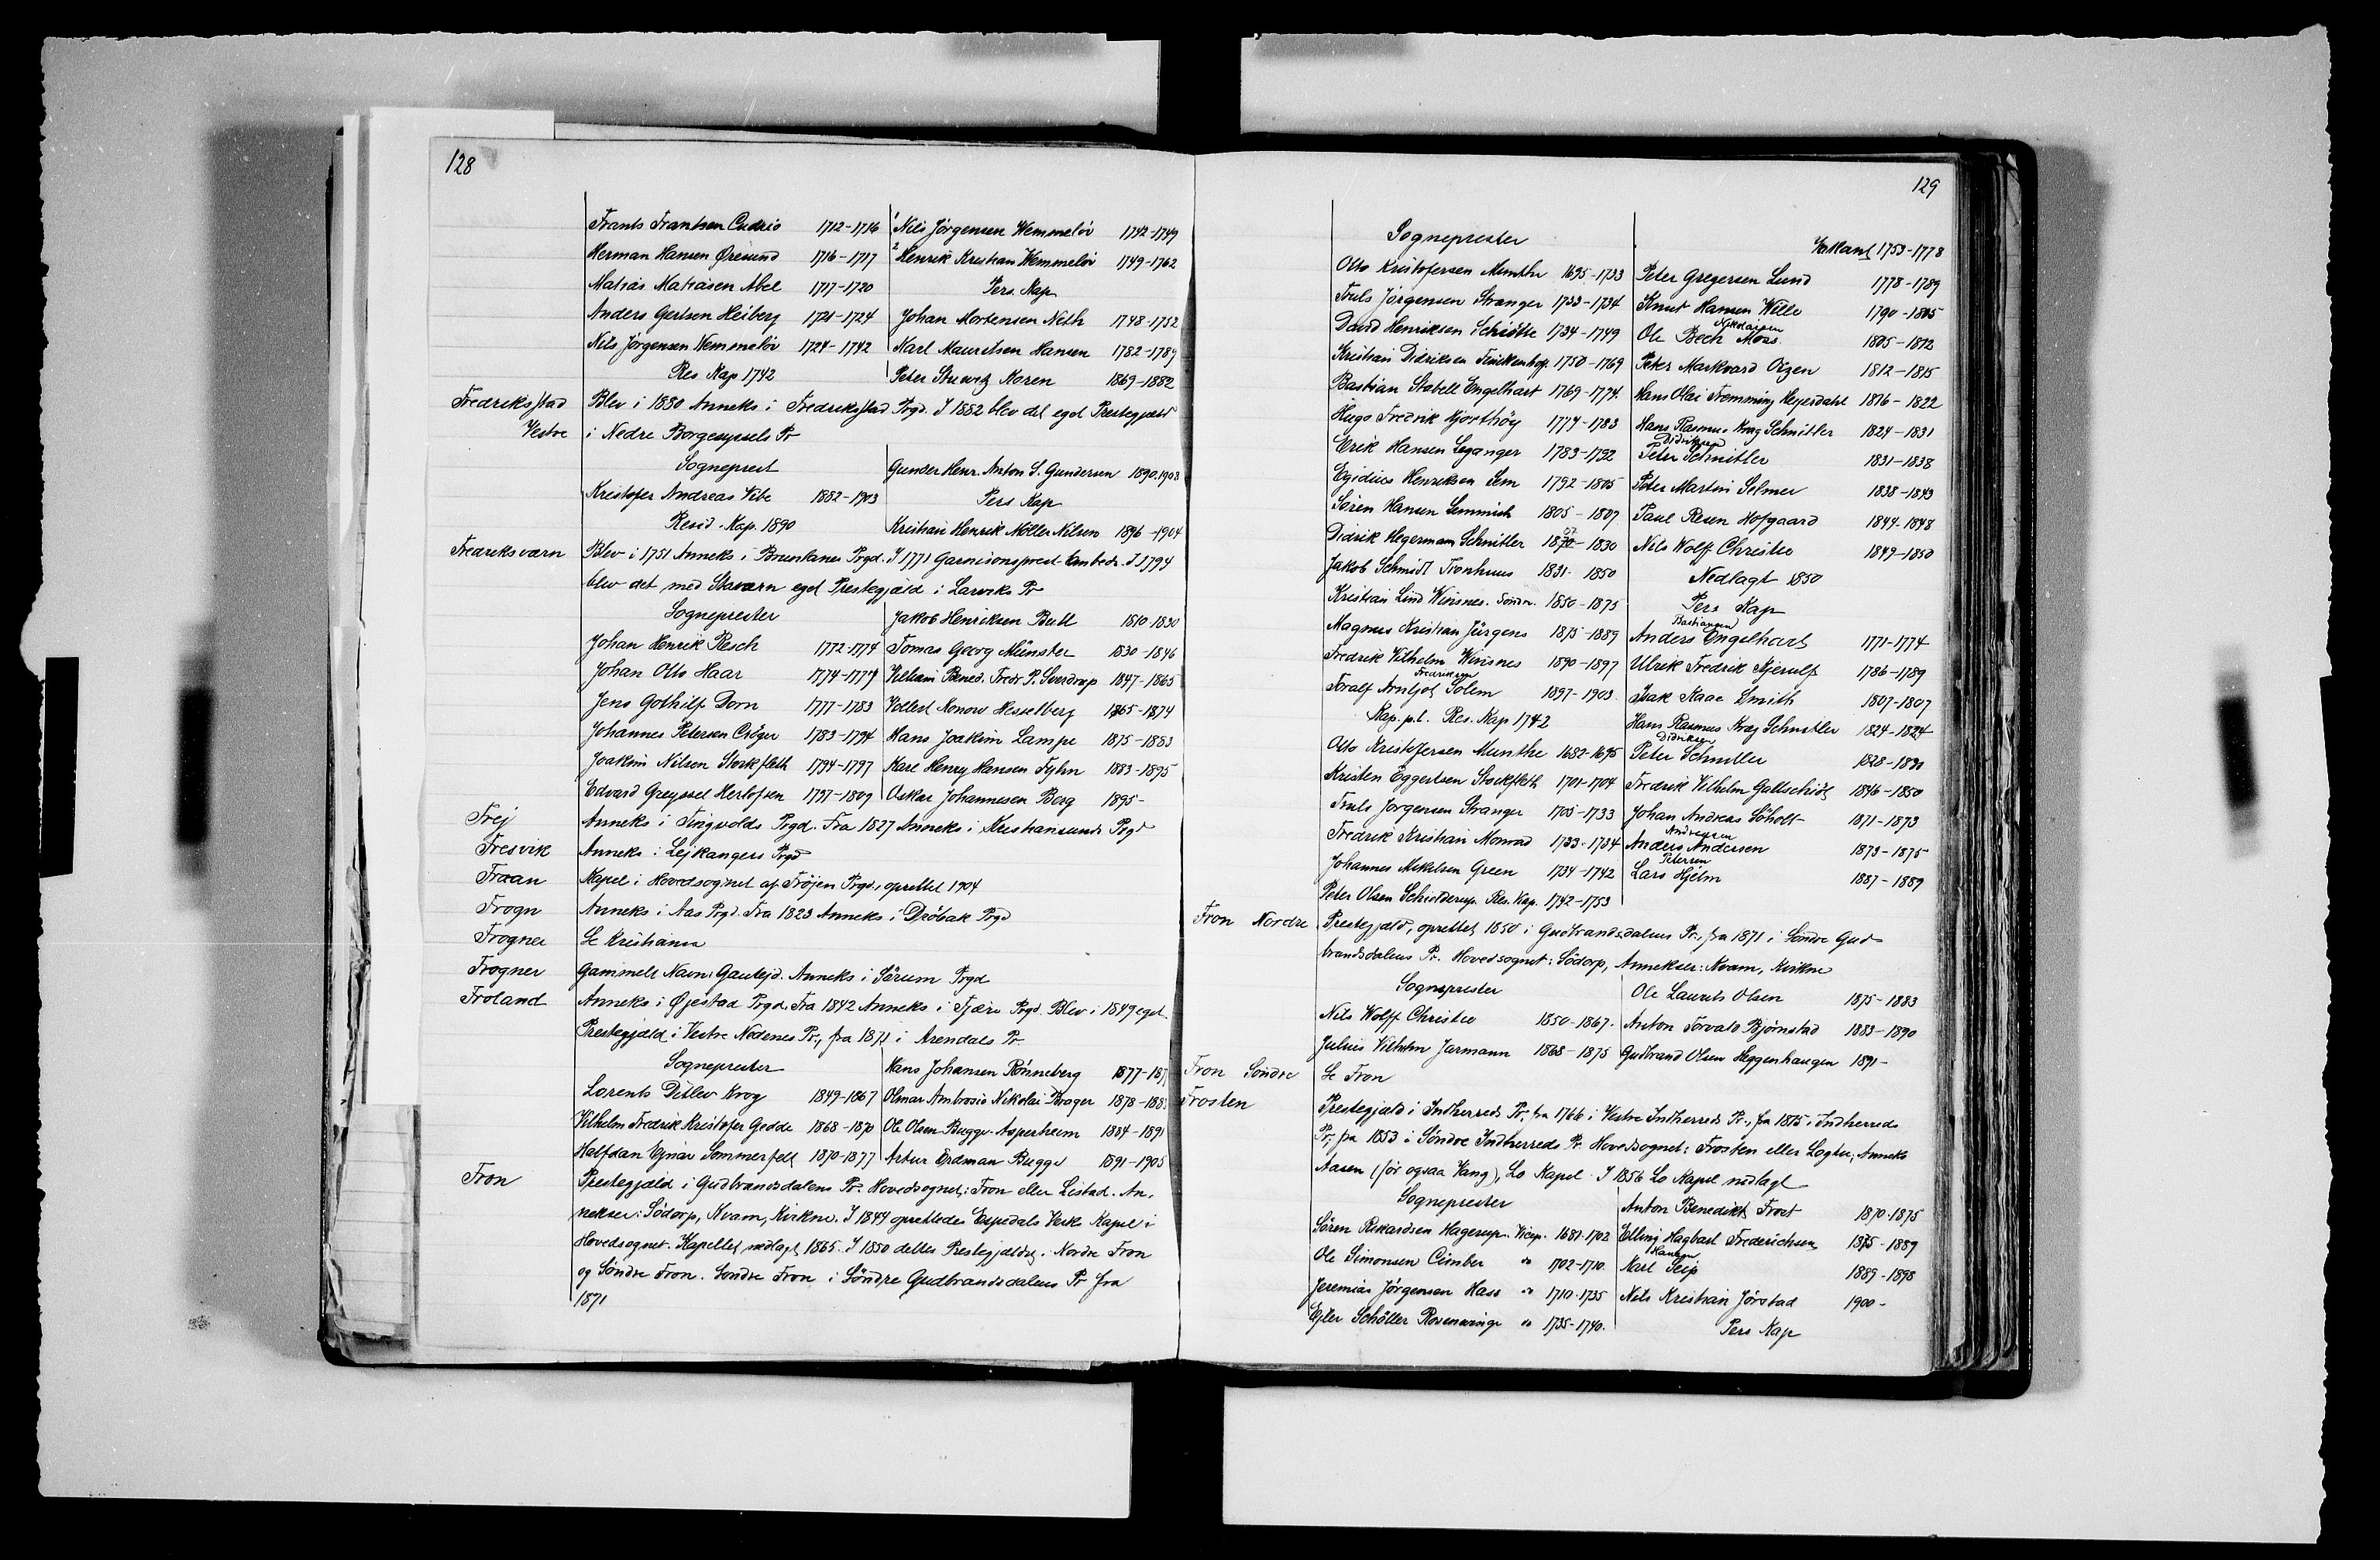 128
Frants Frantsen 1712-1716
Herman Hansen Øresund 1716-1717
Matias Matiasen Abel 1717-1720
Anders Gertsen Heiberg 1721-1724
Nils Jörgensen Wemmelöv 1724-1742
Res. Kap 1742
1 Nils Jörgensen Wemmelöv 1742-1749
2 Henrik Kristian Wemmelöv 1749-1762
Pers. Kap
Johan Mortensen Neth 1748-1752
Karl Mauritsen Hansen 1782-1789
Peter Koren 1869-1882
Fredriksstad Blev i 1830 Anneks i Fredriksstad Prgd. I 1882 blev det eget Prestegjæld
Vestre i Nedre Borgesyssels Pr
Sogneprest
Kristofer Andreas Vibe 1882-1903
Resid. Kap. 1890
Gunder Henr. Anton S. Gundersen 1890-1908
Pers Kap
Kristian Henrik Möller Nilsen 1896-1904
Fredriksværn Blev i 1751 Anneks i Brunlanes Prgd. I 1771 Garnisonsprest-Embede. I 1794
blev det med Staværn eget Prestegjæld i Larviks Pr
Sogneprester
Johan Henrik Resch 1772-1774
Johan Otto Haar 1774-1777
Jens Gothilf Dorn 1777-1783
Johannes Petersen Cröger 1783-1794
Joakim Nilsen Stockfleth 1794-1797
Edvard Greyssel Herlofsen 1797-1809
Jakob Henriksen Bull 1810-1830
Tomas Georg Münster 1830-1846
Vilhelm Bened. Fredr. P. Sverdrup 1847-1865
Vollert Konow Hesselberg 1865-1874
Hans Joakim Lampe 1875-1883
Karl Henry Hansen Fyhn 1883-1895
Oskar Johannesen Berg 1895-
Frej Anneks i Tingvolds Prgd. Fra 1827 Anneks i Kristiansunds Prgd
Fresvik Anneks i Lejkangers Prgd
Fraan Kapel i Hovedsognet af Fröjen Prgd., oprettet 1904
Frogn Anneks i Aas Prgd. Fra 1823 Anneks i Dröbak Prgd
Frogner Se Kristiania
Frogner Gammelt Navn: Gautejd. Anneks i Sörum Prgd
Froland Anneks i Øjestad Prgd. Fra 1842 Anneks i Fjære Prgd. Blev i 1849 eget
Prestegjæld i Vestre Nedenes Pr., fra 1871 i Arendals Pr.
Sogneprester
Lorents Ditlev Krog 1849-1867
Vilhelm Fredrik Kristofer Gedde 1868-1870
Halfdan Ejnar Sommerfelt 1870-1877
Hans Johansen Rönneberg 1877-187
Olmar Ambrosio Nikolai Brager 1878-188
Ole Olsen Bugge-Asperheim 1884-1891
Artur Erdman Bugge 1891-1905
Fron Prestegjæld i Gudbrandsdalens Pr. Hovedsognet: Fron eller Listad. An-
nekser: Södorp, Kvam, Kvikne. I 1844 oprettedes Espedals Verks Kapel i
Hovedsognet. Kapellet nedlagt 1865. I 1850 deltes Prestegjældet i Nordre Fron
og Söndre Fron. Söndre Fron i Söndre Gudbrandsdalens Pr fra
1871
129
Sogneprester
Otto Kristofersen Munthe 1695-1733
Truls Jörgensen Stranger 1733-1734
David Henriksen Schiötte 1734-1749
Kristian Didriksen Finckenhof 1750-1769
Bastian Stabell Engelhart 1769-1774
Hugo Fredrik Hjorthöy 1774-1783
Erik Hansen Leganger 1783-1792
Egidius Henriksen Lem 1792-1805
Sören Hansen Lemmich 1805-1807
Didrik Hegermann Schnitler 1807-1830
Jakob Schmidt Tronhuus 1831-1850
Kristian Lind Winsnes. Söndre. 1850-1875
Magnus Kristian Jürgens 1875-1889
Fredrik Vilhelm Winsnes 1890-1897
Fredriksen
Toralf Arnljot Solem 1897-1903
Kap. p.l. Res. Kap 1742
Otto Kristofersen Munthe 1682-1695
Kristen Eggertsen Stockfleth 1701-1704
Truls Jörgensen Stranger 1705-1733
Fredrik Kristian Monrad 1733-1734
Johannes Mikkelsen Green 1734-1742
Peter Olsen Schiölderup. Res. Kap. 1742-1753
1753-1778
Peter Gregersen Lund 1778-1789
Knut Hansen Wille 1790-1805
Nikolaisen
Ole Bech Moss 1805-1812
Peter Markvard Otzen 1812-1815
Hans Olai Fremming Heyerdahl 1816-1822
Hans Rasmus Krag Schnitler 1824-1831
Didriksen
Peter Schnitler 1831-1838
Peter Martin Selmer 1838-1843
Paul Resen Hofgaard 1844-1848
Nils Wolff Christie 1849-1850
Nedlagt 1850
Pers Kap
Bastiansen
Anders Engelhart 1771-1774
Ulrik Fredrik Kjerulf 1786-1789
Isak Kaae Smith 1807-1807
Hans Rasmus Krag Schnitler 1824-1824
Didriksen
Peter Schnitler 1828-1831
Fredrik Vilhelm Gottschidt 1846-1850
Johan Andreas Söholt 1871-1873
Andersen
Anders Andersen 1873-1875
Petersen
Lars Hjelm 1887-1889
Fron Nordre Prestegjæld, oprettet 1850 i Gudbrandsdalens Pr., fra 1871 i Söndre Gud-
brandsdalens Pr. Hovedsognet: Södorp, Annekser: Kvam, Kvikne
Sogneprester
Nils Wolff Christie 1850-1867.
Julius Vilhelm Jarmann 1868-1875
Ole Laurits Olsen 1875-1883
Anton Torvald Bjørnstad 1883-1890
Gudbrand Olsen Heggenhaugen 1891-
Fron Söndre Se Fron
Frosten Prestegjæld i Indherreds Pr., fra 1766 i Vestre Indherreds Pr., fra 1815 i Indherreds
Pr., fra 1853 i Søndre Indherreds Pr. Hovedsognet: Frosten eller Logtu, Anneks
Aasen (för ogsaa Vang), Lo Kapel. I 1856 Lo Kapel nedlagt
Sogneprester
Sören Rikardsen Hagerup. Vicep. 1681-1702
Ole Simonsen Cimber do 1702-1710
Jeremias Jörgensen Hass do 1710-1735
Ejler Schöller Rosenvinge do 1735-1740.
Anton Benedikt Frost 1870-1875
Elling Hagbart Frederichsen 1875-1889
Hansen
Karl Seip 1889-1898
Nils Kristian Jörstad 1900-
Pers Kap